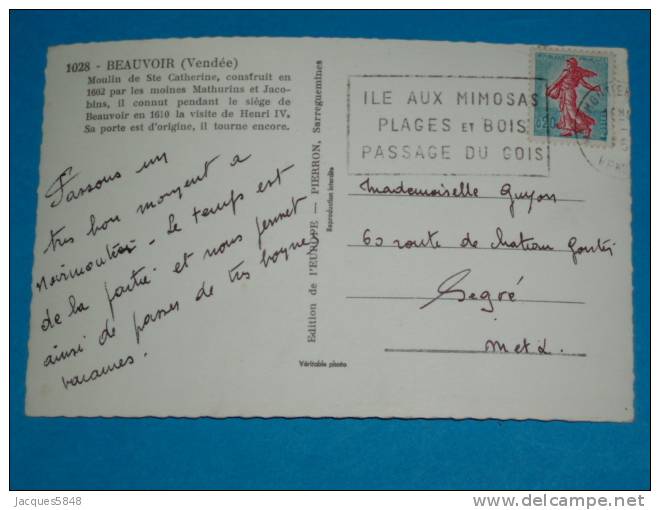 1028 - BEAUVOIR (Vendée)
Moulin de Ste Catherine, construit en
1602 par les moines Mathurins et Jaco-
bins, il connut pendant le siège de
Beauvoir en 1610 la visite de Henri IV.
Sa porte est d'origine, il tourne encore.
Passons un
très bon moment a
Noirmoutier - Le temps est
de la partie et nous permet
ainsi de passer de très bonnes
vacances.
Edition de l'EUROPE — PIERRON, Sarreguemines
Reproduction interdite
Véritable photo
ILE AUX MIMOSAS
PLAGES ET BOIS
PASSAGE DU GOIS
0,20
Mademoiselle Guyon
60 route de Chateau Gontier
Segré
M et L.
Jacques5848
delcampe.net